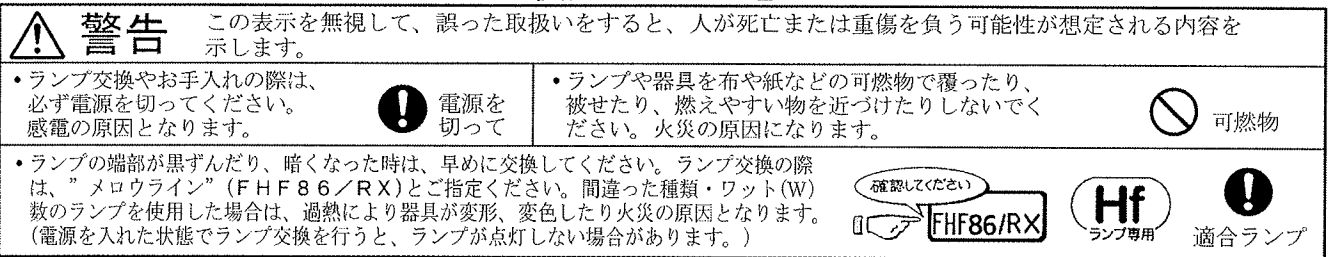 警告 この表示を無視して、誤った取扱いをすると、人が死亡または重傷を負う可能性が想定される内容を
示します。
•ランプ交換やお手入れの際は、
必ず電源を切ってください。
感電の原因となります。
電源を
切って
•ランプや器具を布や紙などの可燃物で覆ったり、
被せたり、燃えやすい物を近づけたりしないでく
ださい。火災の原因になります。
可燃物
•ランプの端部が黒ずんだり、暗くなった時は、早めに交換してください。ランプ交換の際
は、”メロウライン”(FHF86/RX)とご指定ください。間違った種類・ワット(W)
数のランプを使用した場合は、過熱により器具が変形、変色したり火災の原因となります。
(電源を入れた状態でランプ交換を行うと、ランプが点灯しない場合があります。)
確認してください
FHF86/RX
Hf
ランプ専用
適合ランプ